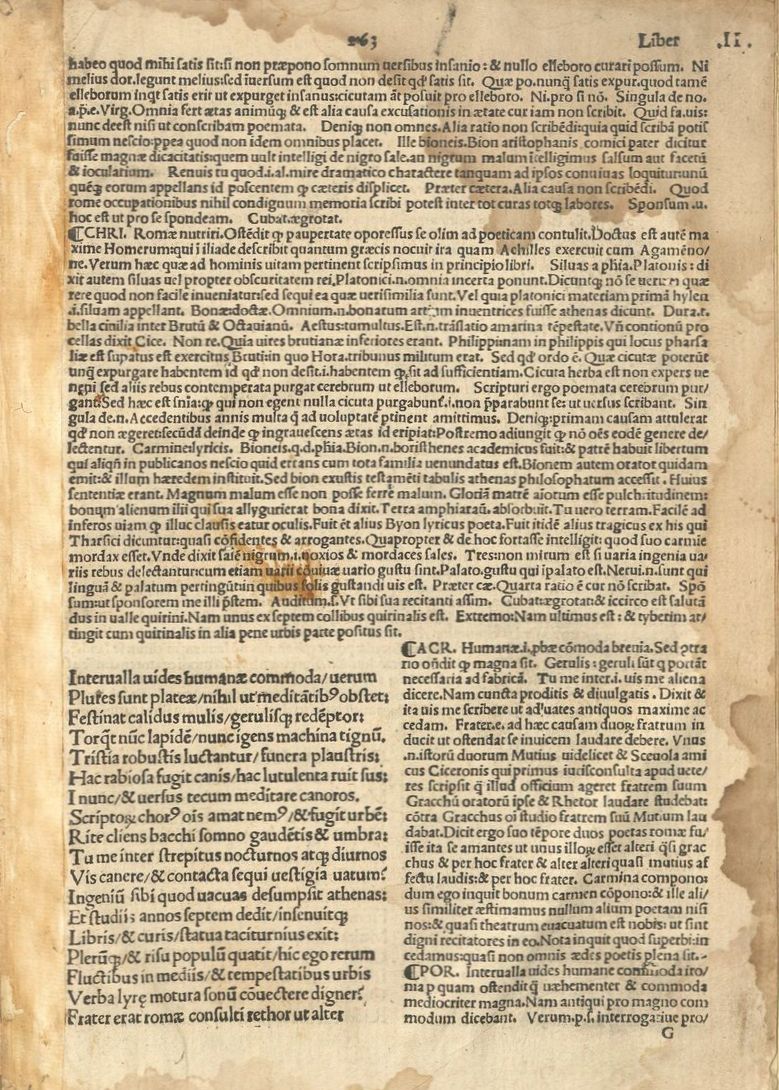 263 Liber .II.
habeo quod mihi satis sit:si non præpono somnum uersibus insanio:& nullo elleboro curari possum. Ni
melius dor.legunt melius:sed iuersum est quod non desit qđ satis sit. Quæ po.nunq̃ satis expur.quod tamē
elleborum inqt satis erit ut expurget insanus:cicutam āt posuit pro elleboro. Ni.pro si nō. Singula de no.
a.p̄.e.Virg.Omnia fert ætas animūq; & est alia causa excusationis in ætate cur iam non scribit. Quid fa.uis:
nunc deest nisi ut conscribam poemata. Deniq; non omnes.Alia ratio non scribēdi:quia quid scribā potis
simum nescio:ppea quod non idem omnibus placet. Ille bioneis.Bion aristophanis comici pater dicitur
fuisse magnæ dicacitatis:quem uult intelligi de nigro sale.an nigrum malum ītelligimus salsum aut facetū
& ioculatium. Renuis tu quod.i.al.mire dramatico charactere tanquam ad ipsos conuiuas loquitur:unū
quēq; eorum appellans id poscentem q̄ cæteris displicet. Præter cætera.Alia causa non scribēdi. Quod
rome occupationibus nihil condignum memoria scribi potest inter tot curas totq; labores. Sponsum .u.
hoc est ut pro se spondeam. Cubat.ægrotat.
¶CHRI. Romæ nutriri.Ostēdit q̄ paupertate opressus se olim ad poeticam contulit.Doctus est autē ma
xime Homerum:qui ī iliade describit quantum græcis nocuit ira quam Achilles exercuit cum Agamēno/
ne.Verum hæc quæ ad hominis uitam pertinent scripsimus in principio libri. Siluas a phīa.Platonis:di
xit autem siluas uel propter obscuritatem rei.Platonici.n.omnia incerta ponunt.Dicuntq; nō se uerum quæ
rere quod non facile inueniatur:sed sequi ea quæ uerisimilia sunt.Vel quia platonici materiam primā hylen
.i.siluam appellant. Bonæ:doctæ.Omnium.n.bonarum artium inuentrices fuisse athenas dicunt. Dura.t.
bella ciuilia inter Brutū & Octauianū. Aestus:tumultus.Est.n.trāslatio amarina tēpestate.Vn̄ contionū pro
cellas dixit Cice. Non re.Quia uires brutianæ inferiores erant. Philippinam in philippis qui locus pharsa
liæ est supatus est exercitus Bruti:in quo Hora.tribunus militum erat. Sed qđ ordo ē. Quæ cicutæ poterūt
unq̄ expurgare habentem id qđ non desit.i.habentem q̄ sit ad sufficientiam.Cicuta herba est non expers ue
neni sed aliis rebus contemperata purgat cerebrum ut elleborum. Scripturi ergo poemata cerebrum pur/
gant.Sed hæc est snīa:q̄ qui non eget nulla cicuta purgabunt.i.non p̄parabunt se: ut uersus scribant. Sin
gula de.n.Accedentibus annis multa q̄ ad uoluptatē ptinent amittimus. Deniq;:primam causam attulerat
qđ non ægeret:secūdā deinde q̄ ingrauescens ætas id eripiat:Postremo adiungit q̄ nō oēs eodē genere de/
lectentur. Carmine:lyricis. Bioneis.q.d.phīa.Bion.n.boristhenes academicus fuit:& patrē habuit libertum
qui aliqn̄ in publicanos nescio quid errans cum tota familia uenundatus est.Bionem autem orator quidam
emit:& illum hæredem instituit.Sed bion exustis testamēti tabulis athenas philosophatum accessit. Huius
sententiæ erant. Magnum malum esse non posse ferre malum. Gloriā matrē aiotum esse pulchritudinem:
bonum alienum illi qui sua allygurierat bona dixit.Terra amphiaraū.absorbuit.Tu uero terram.Facilē ad
inferos uiam q̄ illuc clausis eatur oculis.Fuit et alius Byon lyricus poeta.Fuit itidē alius tragicus ex his qui
Tharsici dicuntur:quasi cōfidentes & arrogantes.Quapropter & de hoc fortasse intelligit:quod suo carmīe
mordax esset.Vnde dixit salē nigrum.i.noxios & mordaces sales. Tres:non mirum est si uaria ingenia ua/
riis rebus delectantur:cum etiam uarii cōuiuæ uario gustu sint.Palato.gustu qui ī palato est.Nerui.n.sunt qui
linguā & palatum pertingūt:in quibus solis gustandi uis est. Præter cæ.Quarta ratio ē cur nō scribat. Spō
sum:ut sponsorem me illi pstem. Auditum.s.Vt sibi sua recitanti assim. Cubat:ægrotat:& iccirco est salutā
dus in ualle quirini.Nam unus ex septem collibus quirinalis est. Extremo:Nam ultimus est:& tyberim at/
tingit cum quirinalis in alia pene urbis parte positus sit.
Interualla uides humanæ commoda/uerum
Plures sunt plateæ/nihil ut meditātibꝰ obstet:
Festinat calidus mulis/gerulisq; redēptor:
Torq̄t nūc lapidē/nunc igens machina tignū.
Tristia robustis luctantur/funera plaustris:
Hac rabiosa fugit canis/hac lutulenta ruit sus:
I nunc/& uersus tecum meditare canoros.
Scriptoꝝ chorꝰ oīs amat nemꝰ/& fugit urbē:
Rite cliens bacchi somno gaudētis & umbra:
Tu me inter strepitus nocturnos atq; diurnos
Vis canere/& contacta sequi uestigia uatum?
Ingeniū sibi quod uacuas desumpsit athenas:
Et studiis annos septem dedit/insenuitq;
Libris/& curis/statua taciturnius exit:
Plerūq; & risu populū quatit/hic ego rerum
Fluctibus in mediis/& tempestatibus urbis
Verba lyrę motura sonū cōuectere digner?
Frater erat romæ consulti rethor ut alter
¶ACR. Humanæ.i.pbæ cōmoda breuia.Sed ꝯtra
rio on̄dit q̄ magna sit. Gerulis:geruli sūt q̄ portāt
necessaria ad fabricā. Tu me inter.i.uis me aliena
dicere.Nam cuncta proditis & diuulgatis. Dixit &
ita uis me scribere ut ad uates antiquos maxime ac
cedam. Frater.e.ad hæc causam duoꝝ fratrum in
ducit ut ostendat se inuicem laudare debere. Vnus
.n.istorū duorum Mutius uidelicet & Sceuola ami
cus Ciceronis qui primus iurisconsulta apud uete/
res scripsit q̄ illud officium ageret fratrem suum
Gracchū oratorū ipse & Rhetor laudare studebat:
cōtra Gracchus oi studio fratrem suū Mutium lau
dabat.Dicit ergo suo tēpore duos poetas romæ fu/
isse ita se amantes ut unus illoꝝ esset alteri q̄si grac
chus & per hoc frater & alter alteri quasi mutius af
fectu laudis:& per hoc frater. Carmina compono:
dum ego inquit bonum carmen cōpono:& ille ali/
us similiter æstimamus nullum alium poetam nisi
nos:& quasi theatrum euacuatum est nobis: ut sint
digni recitatores in eo.Nota inquit quod superbi:in
cedamus:quasi non omnis ædes poetis plena sit.-
¶POR. Interualla uides humane commoda iro/
nia p quam ostendit q̄ uæhementer & commoda
mediocriter magna.Nam antiqui pro magno com
modum dicebant. Verum.p.s.interrogatiue pro/
G